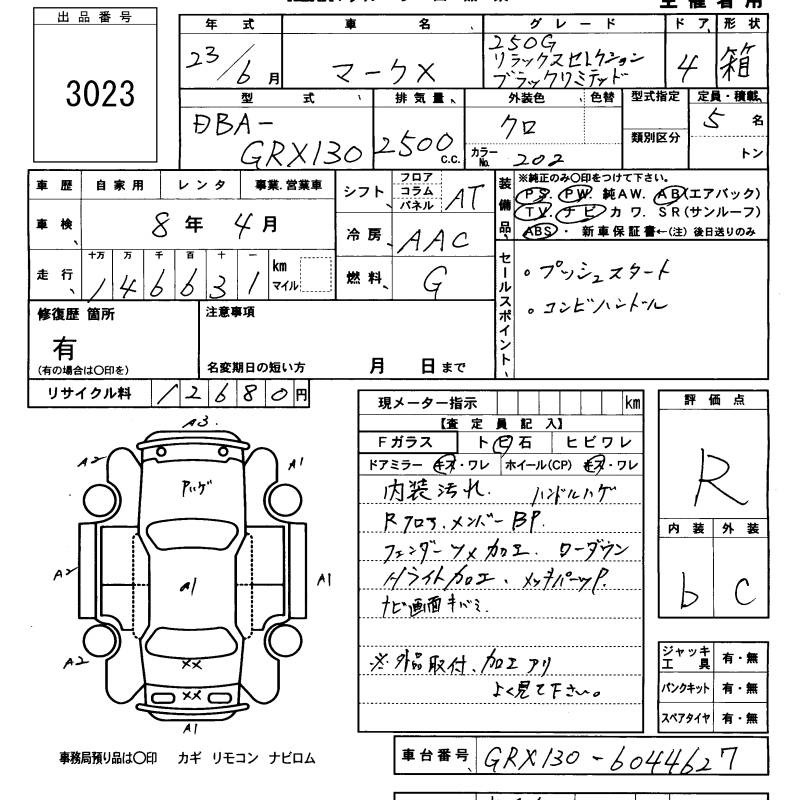 出品番号
3023
年式 車名 グレード ドア 形状
23/6月 マークX 250G リラックスセレクション ブラックリミテッド 4 箱
型式 排気量 外装色 色替 型式指定 定員・積載
DBA-GRX130 2500 C.C. クロ カラーNo. 202 類別区分 5名 トン
車歴 自家用 レンタ 事業.営業車
車検 8年 4月
走行 十万 万 千 百 十 一 km マイル
146631
シフト フロア コラム パネル AT
冷房 AAC
燃料 G
装備品 ※純正のみ〇印をつけて下さい。
PS. PW. 純AW. AB(エアバック)
TV. ナビ カワ. SR(サンルーフ)
ABS・ 新車保証書←(注) 後日送りのみ
セールスポイント
・プッシュスタート
・コンビハンドル
修復歴 箇所
有
(有の場合は〇印を)
注意事項
名変期日の短い方 月 日まで
リサイクル料 12680円
現メーター指示 km
【査定員記入】
Fガラス ト日石 ヒビワレ
ドアミラー キズ・ワレ ホイール(CP) キズ・ワレ
内装汚れ. ハンドルハゲ
Rフロア.メンバーBP.
フェンダーツメ加工. ローダウン
Hライト加工. メッキパーツP.
ナビ画面キバミ.
※外品取付、加工アリ
よく見て下さい。
評価点
R
内装 外装
b C
ジャッキ工具 有・無
パンクキット 有・無
スペアタイヤ 有・無
A3.
A2 A1
Pハゲ
A2 A1 A1
××
A2 ××
A1
事務局預り品は〇印 カギ リモコン ナビロム
車台番号 GRX130-6044627